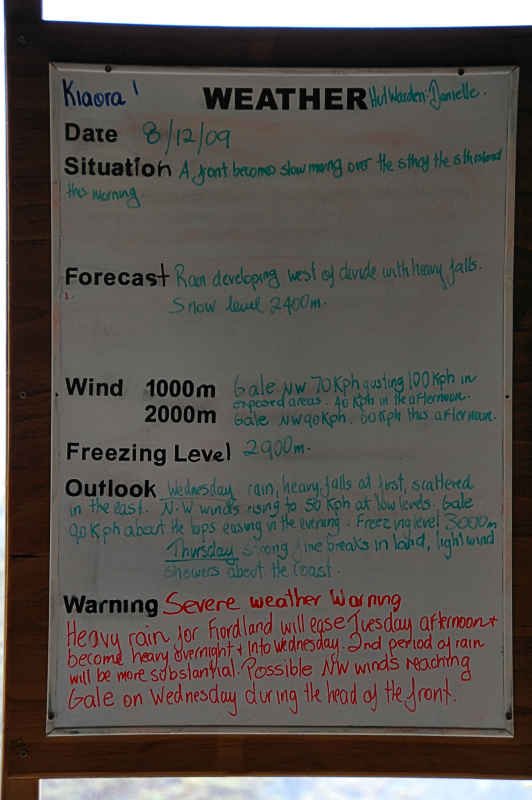 Kiaora ! WEATHER Hut Warden: Danielle.
Date 8/12/09
Situation A front becomes slow moving over the sth of the sth island
this morning.
Forecast Rain developing west of divide with heavy falls.
Snow level 2400m.
Wind 1000m Gale NW 70 Kph gusting 100 Kph in
exposed areas. 40 Kph in the afternoon.
2000m Gale NW 90 Kph. 60 Kph this afternoon.
Freezing Level 2900m.
Outlook Wednesday rain, heavy falls at first, scattered
in the east. N.W winds rising to 50 Kph at low levels. Gale
90 Kph about the tops easing in the evening. Freezing level 3000m
Thursday strong fine breaks in land, light wind
showers about the coast.
Warning Severe weather Warning
Heavy rain for Fiordland will ease Tuesday afternoon +
become heavy overnight + into Wednesday. 2nd period of rain
will be more substantial. Possible NW winds reaching
Gale on Wednesday during the head of the front.